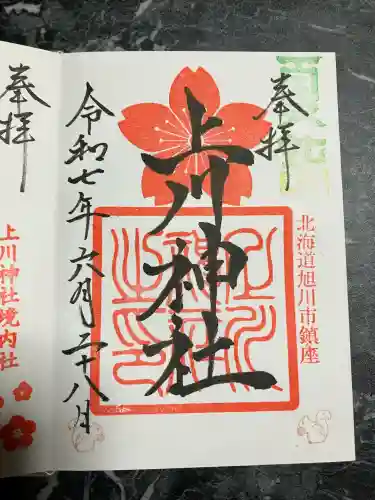 奉拝
北海道旭川市鎮座
上川神社
令和七年六月二十八月
奉拝
上川神社境内社